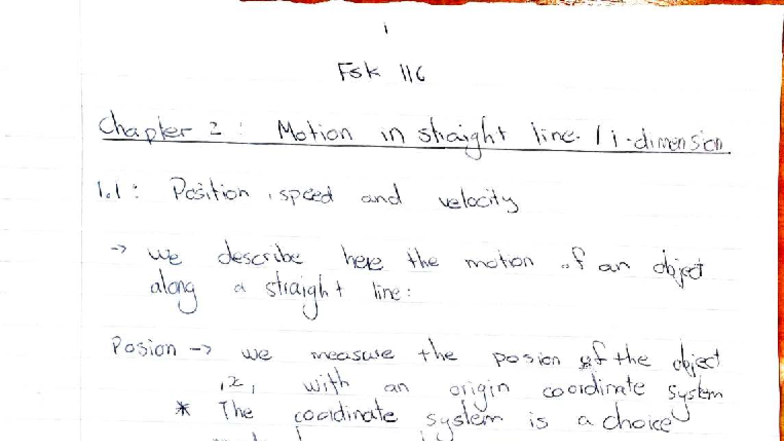 i
Fsk 116
Chapter 2: Motion in straight line / i-dimension
1.1: Position, speed and velocity
-> we describe here the motion of an object
along a straight line:
Posion -> we measure the posion of the object
, x, with an origin coordinate system
* The coordinate system is a choice